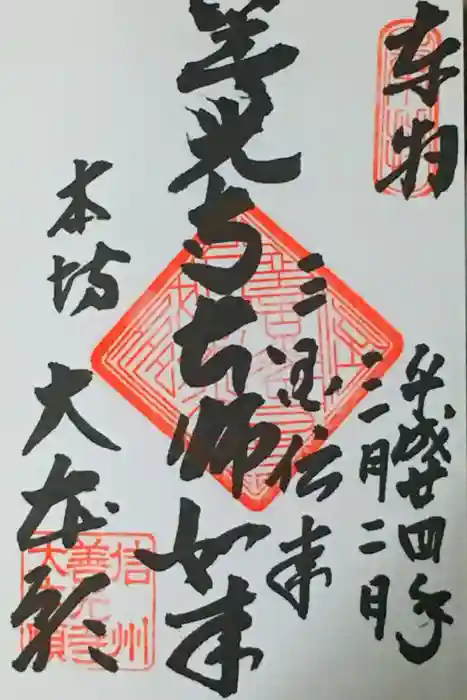 奉拝
平成廿四年
三月二日
三国伝来
善光寺本師如来
本坊
大本願
信州
善光寺
大本願